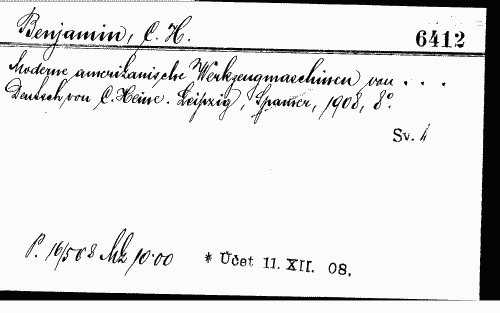 Benjamin, C. H.
6412
Moderne amerikanische Werkzeugmaschinen von . . .
Deutsch von C. Heine. Leipzig, Spamer, 1908, 8°.
Sv. 1
P. 16/5 08 Mk 10·00
* Účet 11. XII. 08.